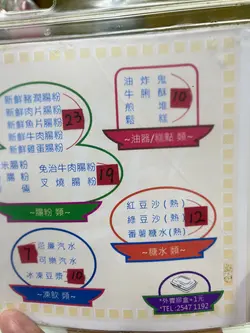 新鮮豬潤腸粉
新鮮肉片腸粉
新鮮魚片腸粉
新鮮牛肉腸粉
新鮮雞蛋腸粉
23
米腸粉
免治牛肉腸粉
腸粉
叉燒腸粉
19
~腸粉 類~
油炸鬼
牛脷酥
煎堆
鬆糕
10
~油器/糕點 類~
紅豆沙(熱)
綠豆沙(熱)
番薯糖水(熱)
12
~糖水 類~
7
可樂汽水
冰凍豆漿
10
~凍飲 類~
*外賣飯盒+1元
*TEL:2547 1192